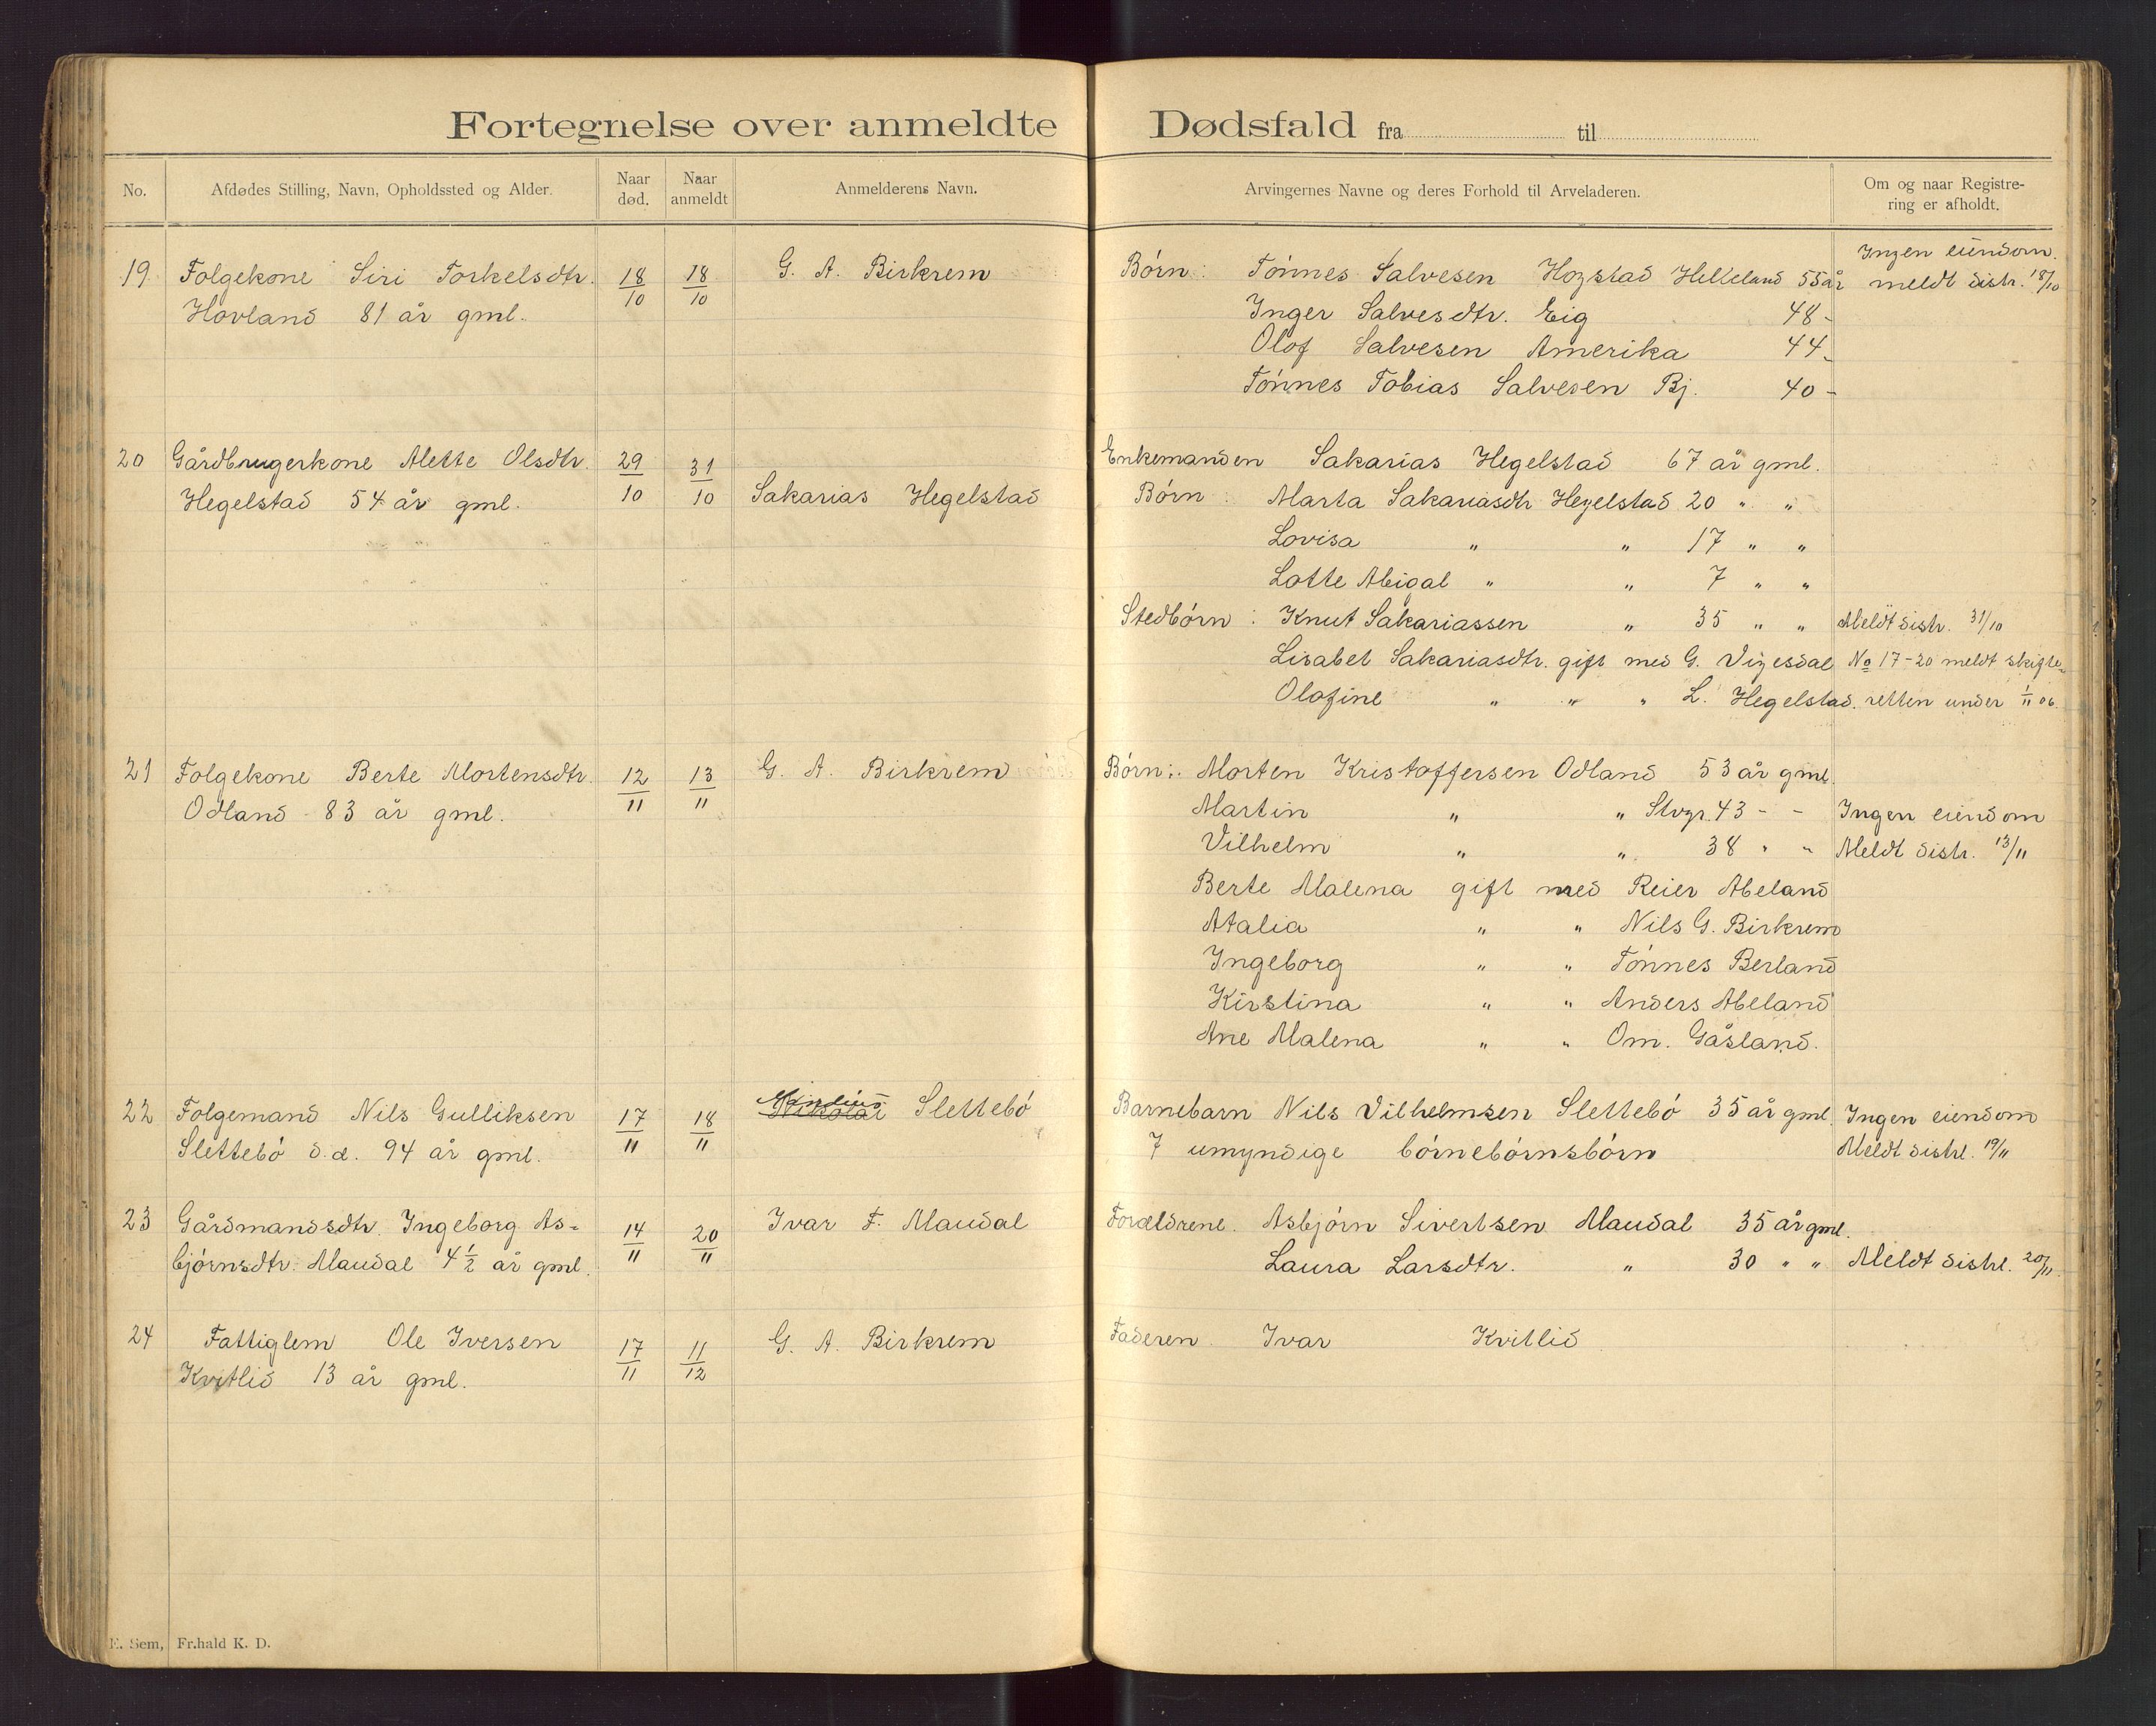 Fortegnelse over anmeldte Dødsfald fra til
No. Afdødes Stilling, Navn, Opholdssted og Alder. Naar død. Naar anmeldt Anmelderens Navn. Arvingernes Navne og deres Forhold til Arveladeren. Om og naar Registrering er afholdt.
19 Folgekone Siri Torkelsdtr. 18/10 18/10 G. A. Birkrem
Hovland 81 år gml.
Børn: Tønnes Salvesen Hogstad Helleland 55 år
Inger Salvesdtr. Eig 48 -
Olof Salvesen Amerika 44 -
Tønnes Tobias Salvesen Bj. 40 -
Ingen eiendom.
meldt distr. 18/10
20 Gårdbrugerkone Alette Olsdtr. 29/10 31/10
Hegelstad 54 år gml. Sakarias Hegelstad
Enkemanden Sakarias Hegelstad 67 år gml.
Børn: Marta Sakariasdtr Hegelstad 20 " "
Lovisa " " 17 " "
Lotte Abigal " " 7 " "
Stedbørn: Knut Sakariassen " 35 " "
Lisabet Sakariasdtr. gift med G. Vigesdal
Olofine " " " L. Hegelstad.
Meldt distr. 31/10
No 17-20 meldt skifte-
retten under 1/11 06.
21 Folgekone Berte Mortensdtr. 12/11 13/11 G. A. Birkrem
Odland 83 år gml.
Børn: Morten Kristoffersen Odland 53 år gml.
Martin " " Stvgr. 43 - -
Vilhelm " " 38 " "
Berte Malena gift med Reier Abeland
Atalia " " Nils G. Birkrem
Ingeborg " " Tønnes Berland
Kirstina " " Anders Abeland
Ane Malena " " Om. Gåsland.
Ingen eiendom
Meldt distr. 13/11
22 Folgemand Nils Gulliksen 17/11 18/11 Nikolai Slettebø
Slettebø d.æ. 94 år gml.
Barnebarn Nils Vilhelmsen Slettebø 35 år gml.
7 umyndige børnebørnsbørn
Ingen eiendom
Meldt distr. 19/11
23 Gårdmandsdtr. Ingeborg As- 14/11 20/11 Ivar T. Maudal
bjørnsdtr. Maudal 4 1/2 år gml.
Forældrene. Asbjørn Sivertsen Maudal 35 år gml.
Laura Larsdtr. " 30 " "
Meldt distr. 20/11.
24 Fattiglem Ole Iversen 17/11 11/12 G. A. Birkrem
Kvitlid 13 år gml.
Faderen Ivar Kvitlid
E. Sem, Fr.hald K. D.